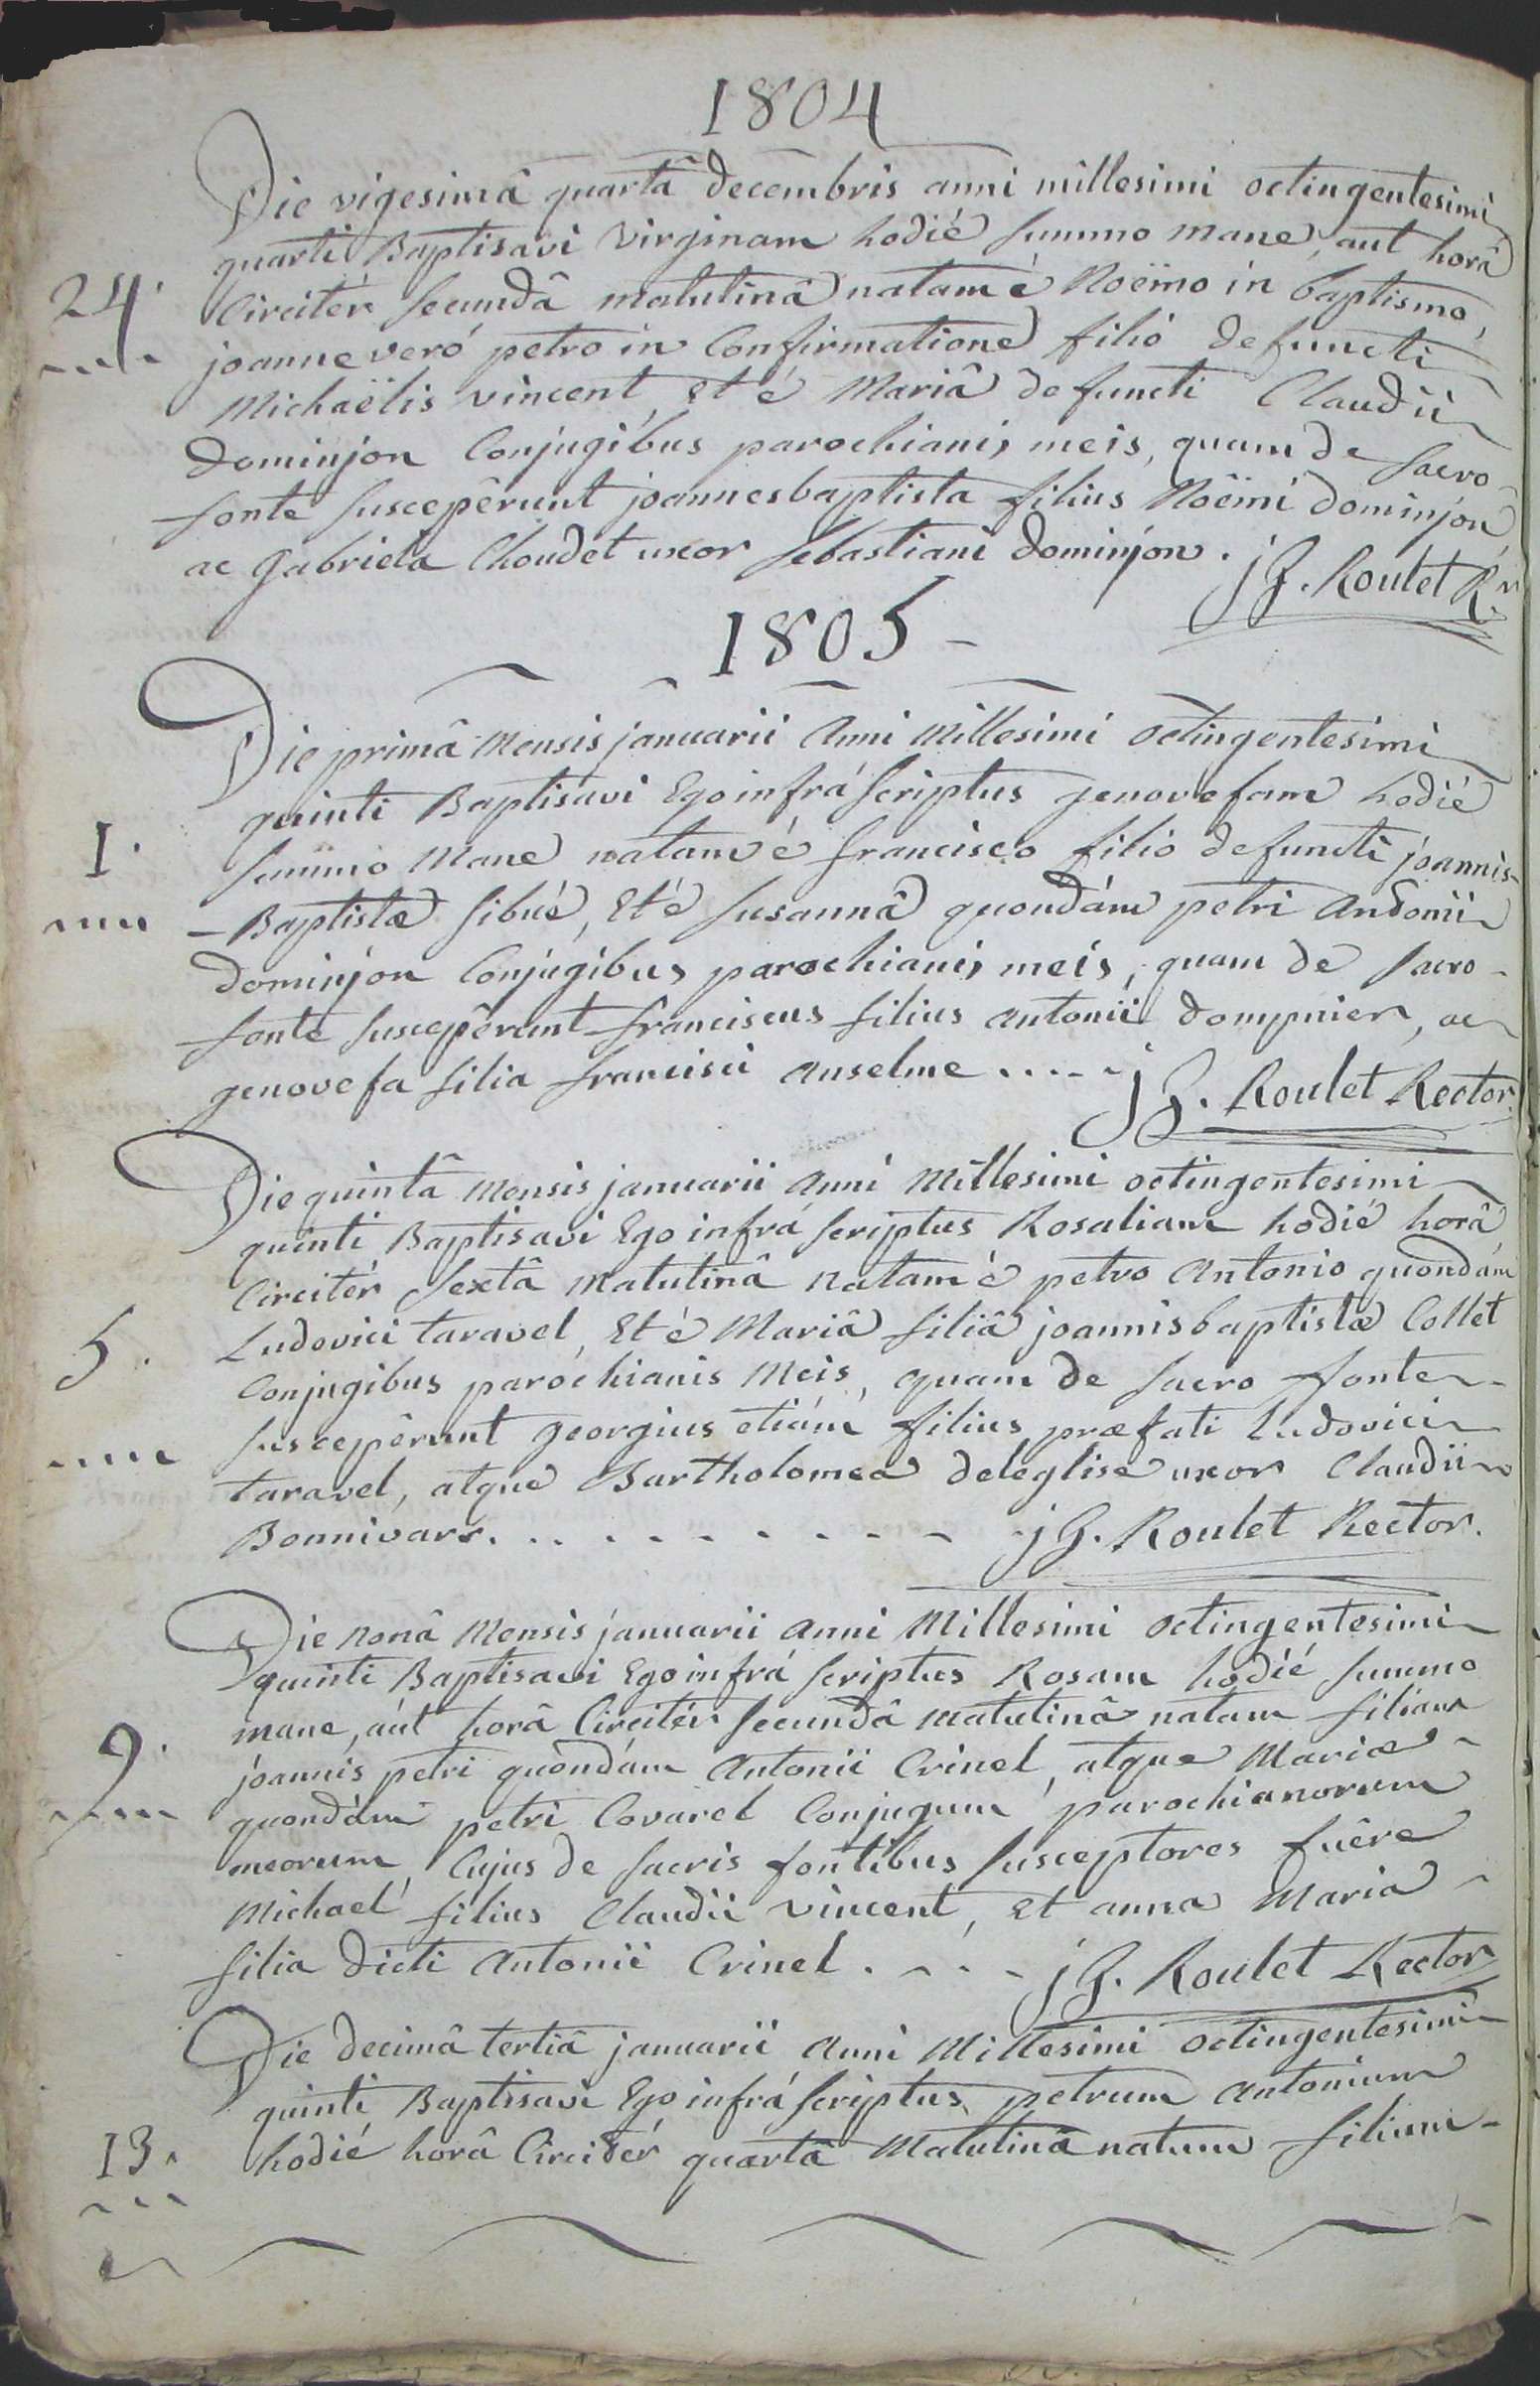 1804
Die vigesimâ quartâ decembris anni millesimi octingentesimi
quarti Baptisavi Virginam hodiè summo mane, aut horâ
24.
Circitèr secundâ matutinâ natam é Noëmo in baptismo,
joanne veró petro in Confirmatione filió defuncti
Michaëlis vincent, Et é Mariâ defuncti Claudii
dominjon Conjugibus parochianis meis, quam de sacro
fonte suscepêrunt joannes baptista filius Noëmi dominjon,
ac gabriela Choudet uxor sebastiani dominjon. j G. Roulet R.r
1805 -
Die primâ Mensis januarii Anni Millesimi octingentesimi
quinti Baptisavi Ego infrá scriptus genovefam hodié
1.
summo Mane natam é francisco filio defuncti joannis-
-Baptistæ sibué, Et é susannâ quondám petri Andonii
dominjon Conjugibus parochianis meis, quam de sacro-
fonte suscepêrunt franciscus filius antonii dompnier, ac
genovefa filia francisci anselme .... j G. Roulet Rector.
Die quintâ Mensis januarii Anni Millesimi octingentesimi
quinti Baptisavi Ego infrá scriptus Rosaliam hodié horâ
Circitér sextâ Matutinâ Natam é petro Antonio quondám
5.
Ludovici taravel, Et é Mariâ filiâ joannis baptistæ Collet
Conjugibus parochianis Meis, quam de sacro fonte
suscepêrunt georgius etiám filius præfati Ludovici
taravel, atque Bartholomea deleglise uxor Claudii
Bonnivars. . . . . . . . . . j G. Roulet Rector.
Die nonâ Mensis januarii anni Millesimi octingentesimi
quinti Baptisavi Ego infrá scriptus Rosam hodié summo
mane, aut horâ Circitér secundâ matutinâ natam filiam
9.
joannis petri quondám Antonii Crinel, atque Mariæ
quondám petri Covarel Conjugum parochianorum
meorum, Cujus de sacris fontibus susceptores fuêre
Michael filius Claudii vincent, Et anna Maria
filia dicti Antonii Crinel . . . - j G. Roulet Rector
Die decimâ tertiâ januarii Anni Millesimi octingentesimi
quinti Baptisavi Ego infrá scriptus petrum Antonium
13.
hodié horâ Circitér quartâ Matutinâ natum filium-